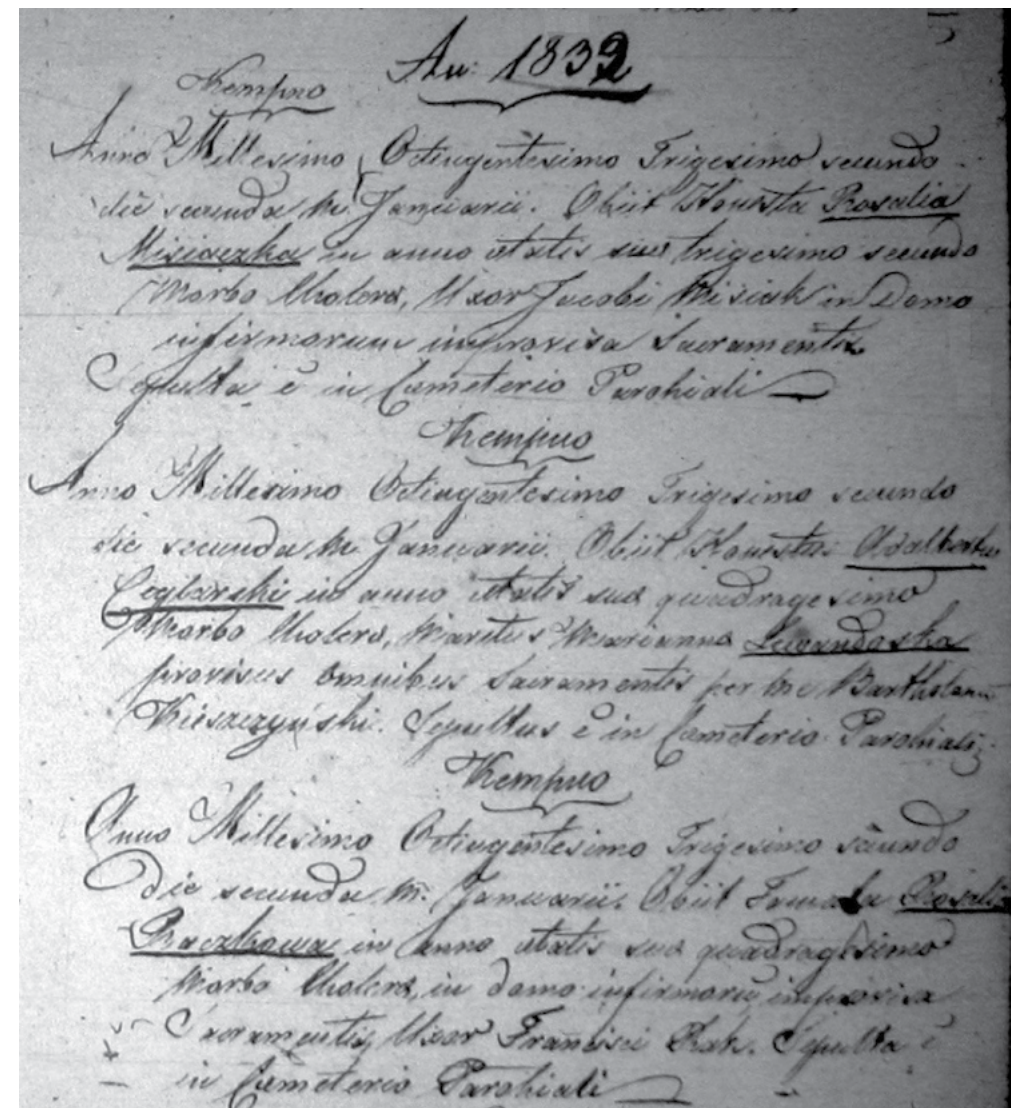 An: 1832
Kempno
Anno Millesimo Octingentesimo Trigesimo secundo
die secunda m. Januarii. Obiit Honesta Rosalia
Misiaczka in anno etatis sue trigesimo secundo
Morbo Cholera, Uxor Jacobi Misiak in Domo
infirmorum improvisa Sacramentis
Sepulta ē in Cameterio Parohiali
Kempno
Anno Millesimo Octingentesimo Trigesimo secundo
die secunda m. Januarii. Obiit Honestus Adalbertus
in anno etatis sua quadragesimo
Morbo Cholera, Maritus Marianna Lewandoska
provisus omnibus Sacramentis per me Bartholom
Kieszczyński. Sepultus ē in Cameterio Parohiali
Kempno
Anno Millesimo Octingentesimo Trigesimo secundo
Die secunda m. Januarii. Obiit Famula Rosalia
Raczkowa in anno etatis sua quadragesimo
Morbo Cholera, in domo infirmorū improvisa
Sacramentis, Uxor Francisci Rak. Sepulta ē
in Cameterio Parohiali